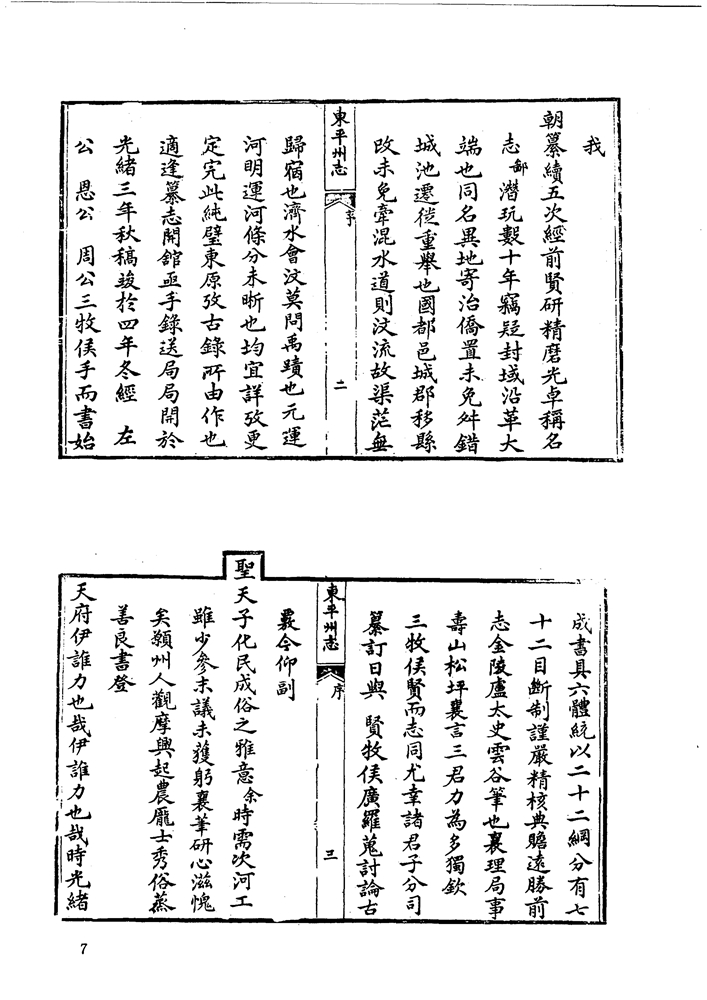 我
朝纂續五次經前賢研精磨光卓稱名
志鄙潛玩數十年竊疑封域沿革大
端也同名異地寄治僑置未免舛錯
城池遷徙重舉也國都邑城郡移縣
改未免牽混水道則汶流故渠茫無
東平州志
序
二
歸宿也濟水會汶莫問禹蹟也元運
河明運河條分未晰也均宜詳攷更
定完此純璧東原攷古錄所由作也
適逢纂志開館亟手錄送局局開於
光緒三年秋稿竣於四年冬經 左
公 恩公 周公三牧侯手而書始
成書具六體統以二十二綱分有七
十二目斷制謹嚴精核典贍遠勝前
志金陵盧太史雲谷筆也襄理局事
壽山松坪襄言三君力為多獨欽
三牧侯賢而志同尤幸諸君子分司
纂訂日與 賢牧侯廣羅蒐討論古
東平州志
序
三
覈今仰副
聖天子化民成俗之雅意余時需次河工
雖少參末議未獲躬襄筆研心滋愧
矣願州人觀摩興起農龐士秀俗蒸
善良書登
天府伊誰力也哉伊誰力也哉時光緒
7